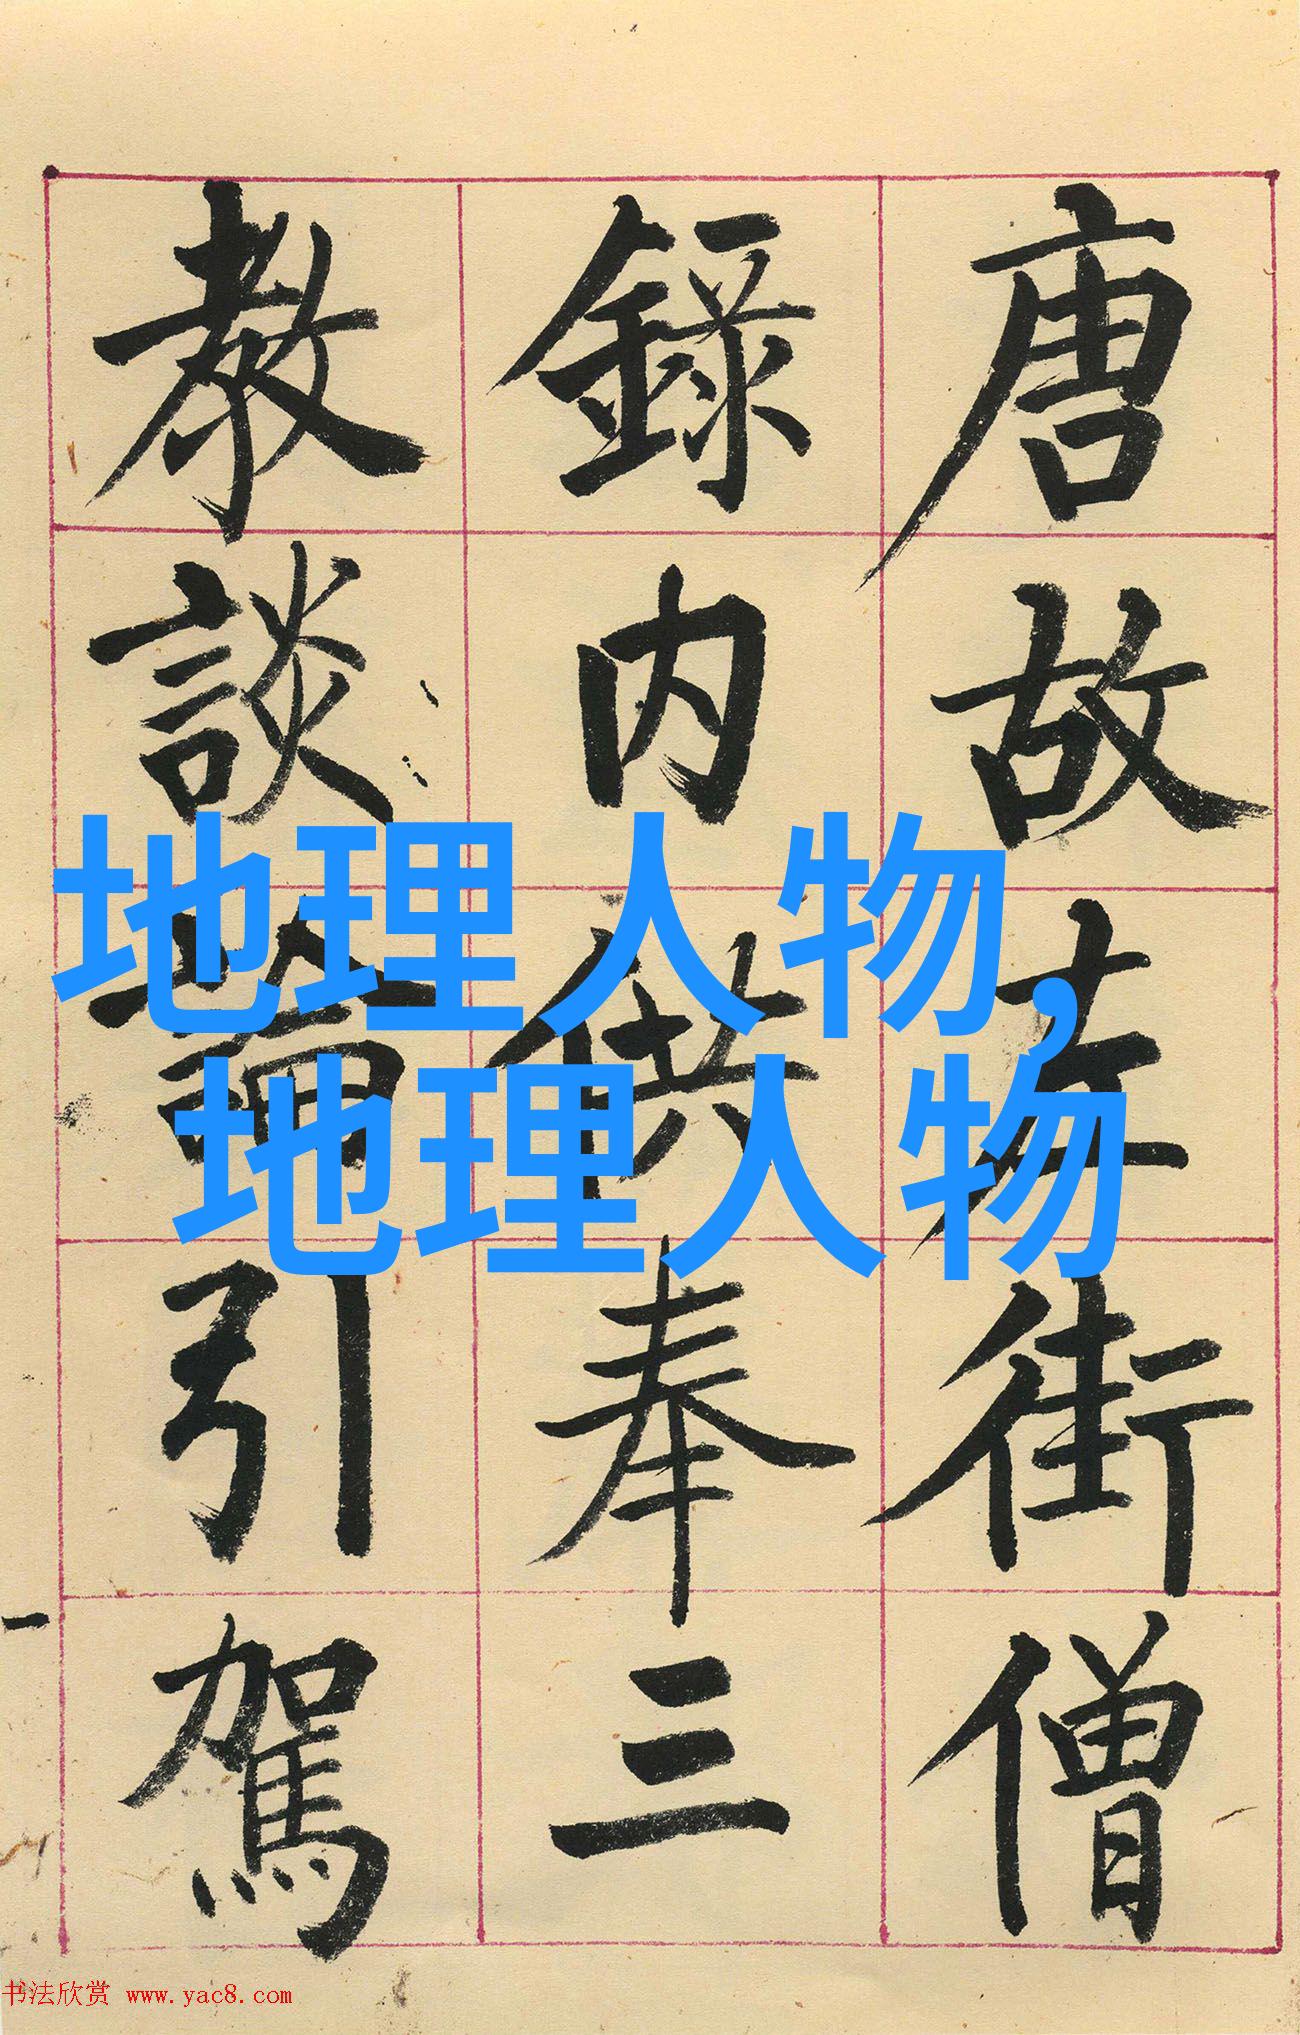 唐故左街僧
錄內供奉三
教談論引駕
地理人物,
地理人物
书法欣赏 www.yac8.com